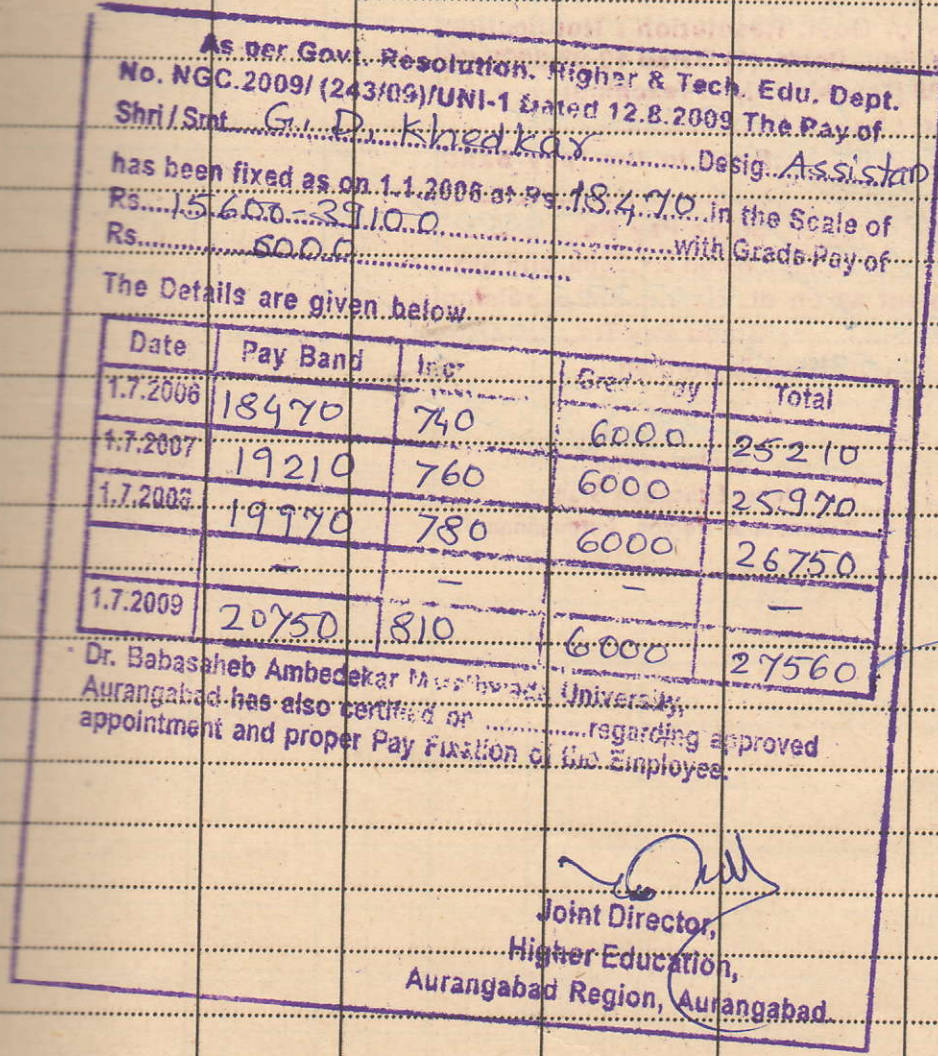 As per Govt. Resolution. Higher & Tech. Edu. Dept.
No. NGC.2009/ (243/09)/UNI-1 Dated 12.8.2009 The Pay of
Shri / Smt G. D. Khedkar Desig. Assistan
has been fixed as on 1.1.2006 at Rs. 18470 in the Scale of
Rs. 15600-39100 with Grade Pay of
Rs. 6000
The Details are given below
Date Pay Band Incr Grade Pay Total
1.7.2006 18470 740 6000 25210
1.7.2007 19210 760 6000 25970
1.7.2008 19970 780 6000 26750
— — — —
1.7.2009 20750 810 6000 27560
Dr. Babasaheb Ambedekar Marathwada University,
Aurangabad has also certified on ............ regarding approved
appointment and proper Pay Fixation of the Employee.
Joint Director,
Higher Education,
Aurangabad Region, Aurangabad.